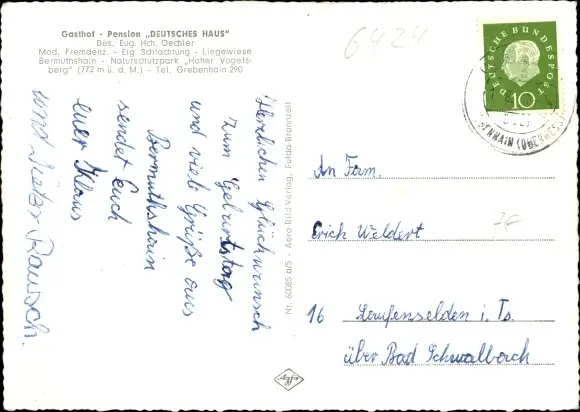 Gasthof · Pension „DEUTSCHES HAUS"
Bes. Eug. Hch. Oechler
Mod. Fremdenz. - Eig. Schlachtung - Liegewiese
Bermuthshain - Naturschutzpark „Hoher Vogels-
berg" (772 m ü. d. M.) - Tel. Grebenhain 290
6424
DEUTSCHE BUNDESPOST
10
Herzlichen Glückwunsch
zum Geburtstag
und viele Grüße aus
Bermuthshain
sendet Euch
euer Klaus
und Dieter Rausch.
Nr. 60085 a/5 - Aero-Bild Verlag, Fulda-Bronnzell
An Fam.
Erich Weldert
16 Laufenselden i. Ts.
über Bad Schwalbach
7E
Agfa